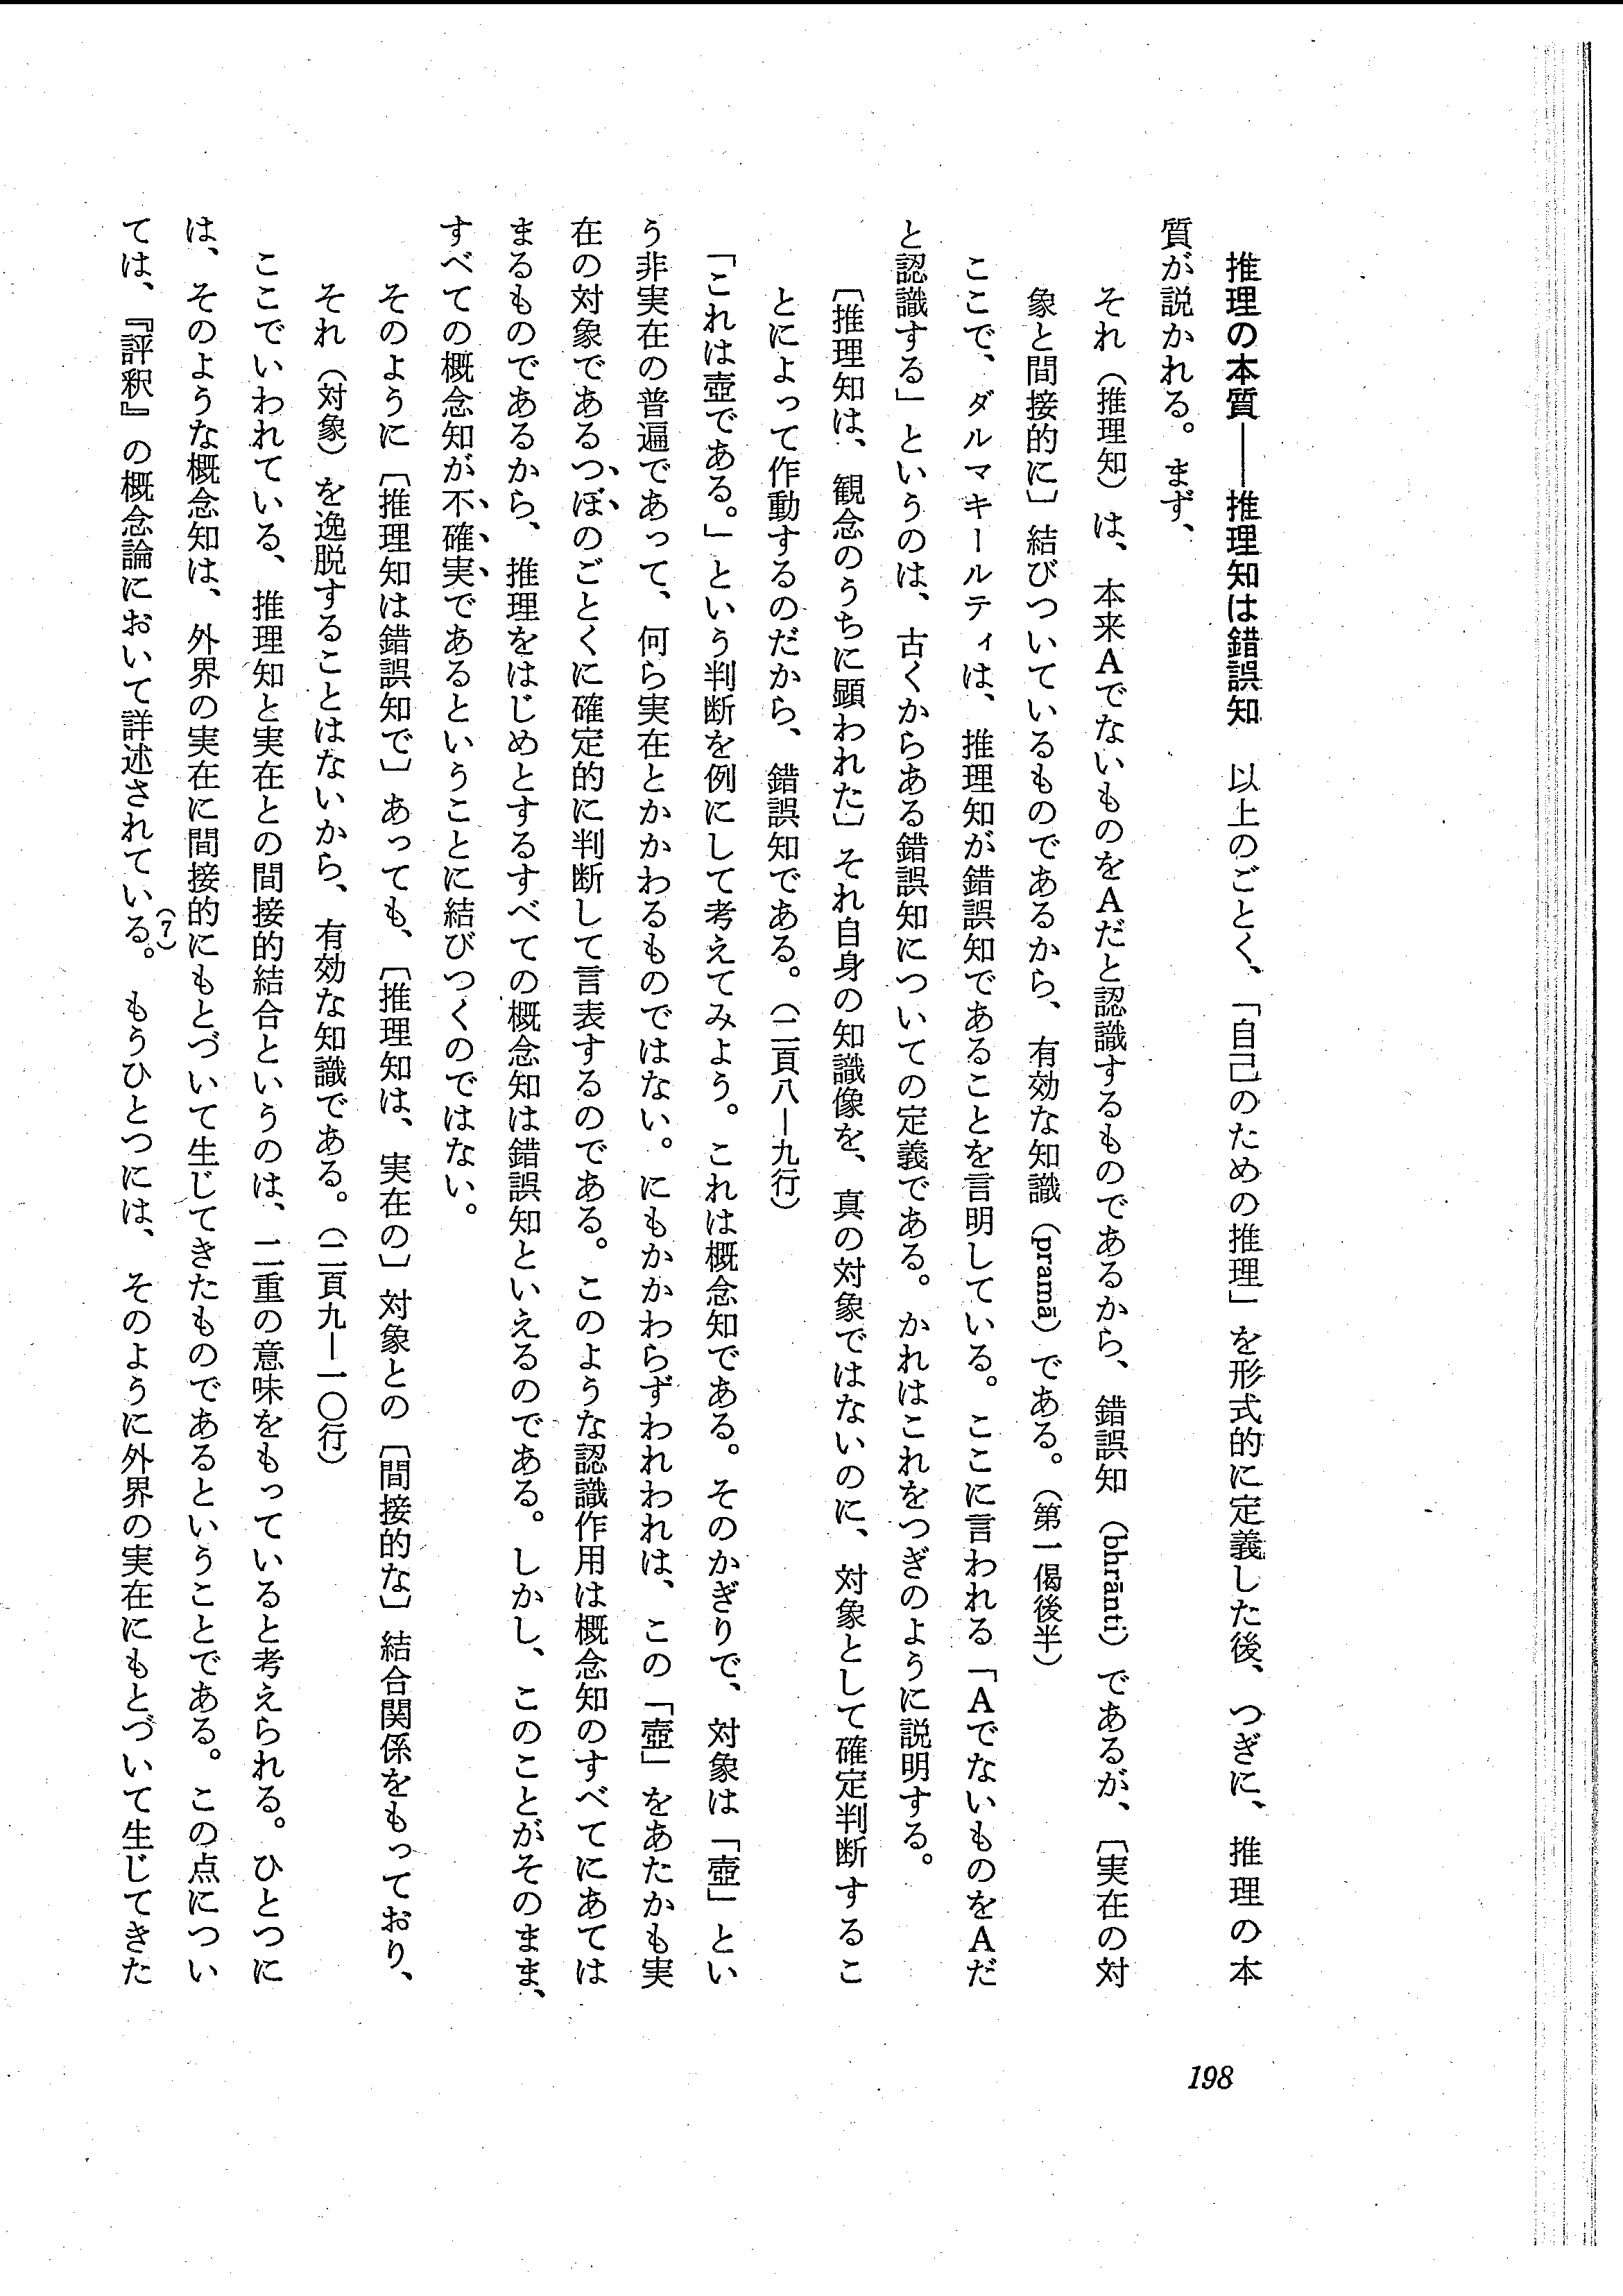 推理の本質――推理知は錯誤知　以上のごとく、「自己のための推理」を形式的に定義した後、つぎに、推理の本
質が説かれる。まず、
それ（推理知）は、本来Aでないものを Aだと認識するものであるから、錯誤知（bhrānti）であるが、〔実在の対
象と間接的に〕結びついているものであるから、有効な知識（pramā）である。（第一偈後半）
ここで、ダルマキールティは、推理知が錯誤知であることを言明している。ここに言われる「AでないものをAだ
と認識する」というのは、古くからある錯誤知についての定義である。かれはこれをつぎのように説明する。
〔推理知は、観念のうちに顕われた〕それ自身の知識像を、真の対象ではないのに、対象として確定判断するこ
とによって作動するのだから、錯誤知である。（二頁八―九行）
「これは壺である。」という判断を例にして考えてみよう。これは概念知である。そのかぎりで、対象は「壺」とい
う非実在の普遍であって、何ら実在とかかわるものではない。にもかかわらずわれわれは、この「壺」をあたかも実
在の対象であるつぼのごとくに確定的に判断して言表するのである。このような認識作用は概念知のすべてにあては
まるものであるから、推理をはじめとするすべての概念知は錯誤知といえるのである。しかし、このことがそのまま、
すべての概念知が不確実であるということに結びつくのではない。
そのように〔推理知は錯誤知で〕あっても、〔推理知は、実在の〕対象との〔間接的な〕結合関係をもっており、
それ（対象）を逸脱することはないから、有効な知識である。（二頁九―一〇行）
ここでいわれている、推理知と実在との間接的結合というのは、二重の意味をもっていると考えられる。ひとつに
は、そのような概念知は、外界の実在に間接的にもとづいて生じてきたものであるということである。この点につい
ては、『評釈』の概念論において詳述されている。(7)もうひとつには、そのように外界の実在にもとづいて生じてきた
198